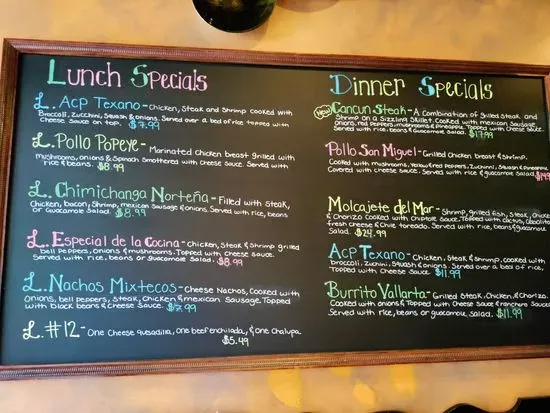 Lunch Specials
L. Acp Texano - Chicken, Steak and Shrimp cooked with
Broccoli, Zucchini, Squash & onions. Served over a bed of rice topped with
Cheese Sauce on top. $7.99
L. Pollo Popeye - Marinated Chicken breast grilled with
mushrooms, onions & Spinach Smothered with Cheese Sauce. Served with
rice & beans. $8.99
L. Chimichanga Norteña - Filled with steak,
Chicken, bacon, Shrimp, mexican sausage & onions. Served with rice, beans
or Guacamole Salad. $8.99
L. Especial de la Cocina - Chicken, Steak & Shrimp grilled
bell peppers, onions & mushrooms. Topped with Cheese Sauce.
Served with rice, beans or guacamole Salad. $8.99
L. Nachos Mixtecos - Cheese Nachos, Cooked with
Onions, bell peppers, steak, chicken & mexican Sausage. Topped
with black beans & Cheese Sauce. $7.99
L. #12 - One Cheese quesadilla, One beef enchilada, & One Chalupa.
$5.49
Dinner Specials
New Cancun Steak - A Combination of Grilled Steak, and
Shrimp on a Sizzling Skillet. Cooked with mexican Sausage
Onions, red peppers, mushrooms & pineapple. Topped with Cheese Sauce.
Served with rice, beans & Guacamole Salad. $17.99
Pollo San Miguel - Grilled Chicken breast & Shrimp.
Cooked with mushrooms, Yellow & red peppers, Zucchini, Squash & pineapple.
Covered with Cheese sauce. Served with rice & guacamole Salad.
Molcajete del Mar - Shrimp, grilled fish, steak, Chicken
& Chorizo Cooked with Chipotle sauce. Topped with Cactus,
fresh cheese & Chile toreado. Served with rice, beans & Guacamole
Salad. $24.99
Acp Texano - Chicken, Steak & Shrimp, cooked with
broccoli, Zucchini, Squash & onions. Served over a bed of rice,
Topped with Cheese Sauce. $11.99
Burrito Vallarta - Grilled Steak, Chicken, & Chorizo.
Cooked with onions & Topped with Cheese Sauce & ranchero Sauce
Served with rice, beans or guacamole salad. $11.99